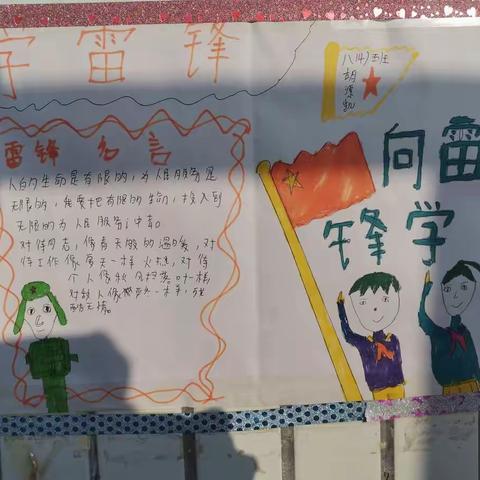 学雷锋
雷锋名言
人的生命是有限的,为人民服务是
无限的,我要把有限的生命,投入到
无限的为人民服务之中去。
对待同志,像春天般的温暖,对
待工作像夏天一样火热,对待
个人像秋风扫落叶一样
对敌人像严冬一样,残
酷无情。
八(4)五班
胡
向雷
锋学